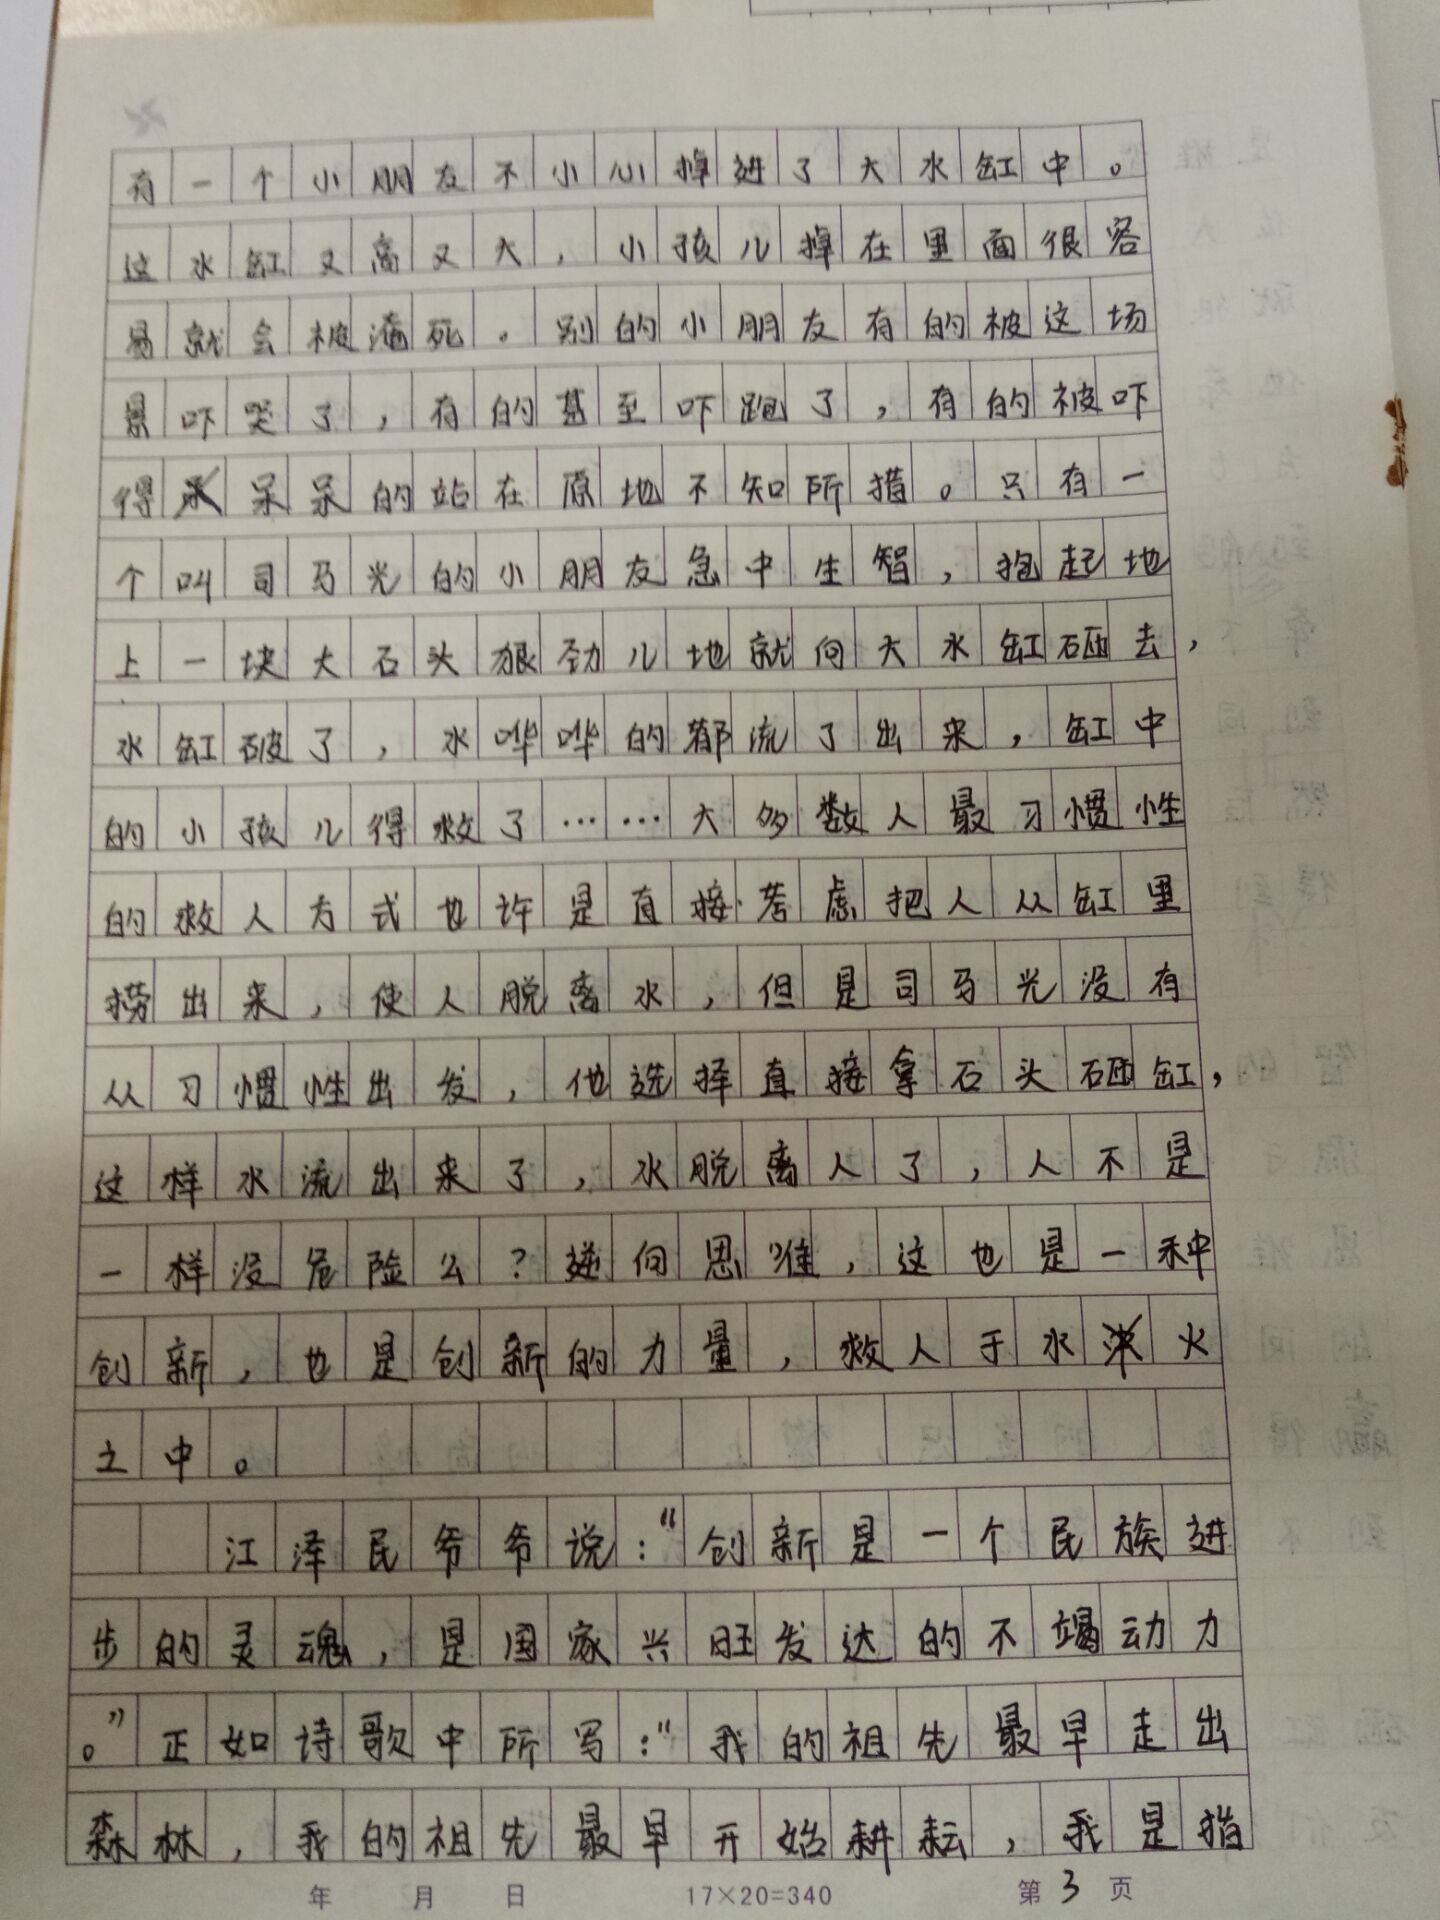 有一个小朋友不小心掉进了大水缸中。
这水缸又高又大，小孩儿掉在里面很容
易就会被淹死。别的小朋友有的被这场
景吓哭了，有的甚至吓跑了，有的被吓
得呆呆的站在原地不知所措。只有一
个叫司马光的小朋友急中生智，抱起地
上一块大石头狠劲儿地就向大水缸砸去，
水缸破了，水哗哗的都流了出来，缸中
的小孩儿得救了……大多数人最习惯性
的救人方式也许是直接考虑把人从缸里
捞出来，使人脱离水，但是司马光没有
从习惯性出发，他选择直接拿石头砸缸，
这样水流出来了，水脱离人了，人不是
一样没危险么？逆向思维，这也是一种
创新，也是创新的力量，救人于水火
之中。
江泽民爷爷说：“创新是一个民族进
步的灵魂，是国家兴旺发达的不竭动力
。”正如诗歌中所写：“我的祖先最早走出
森林，我的祖先最早开始耕耘，我是指
年 月 日 17×20=340 第3页